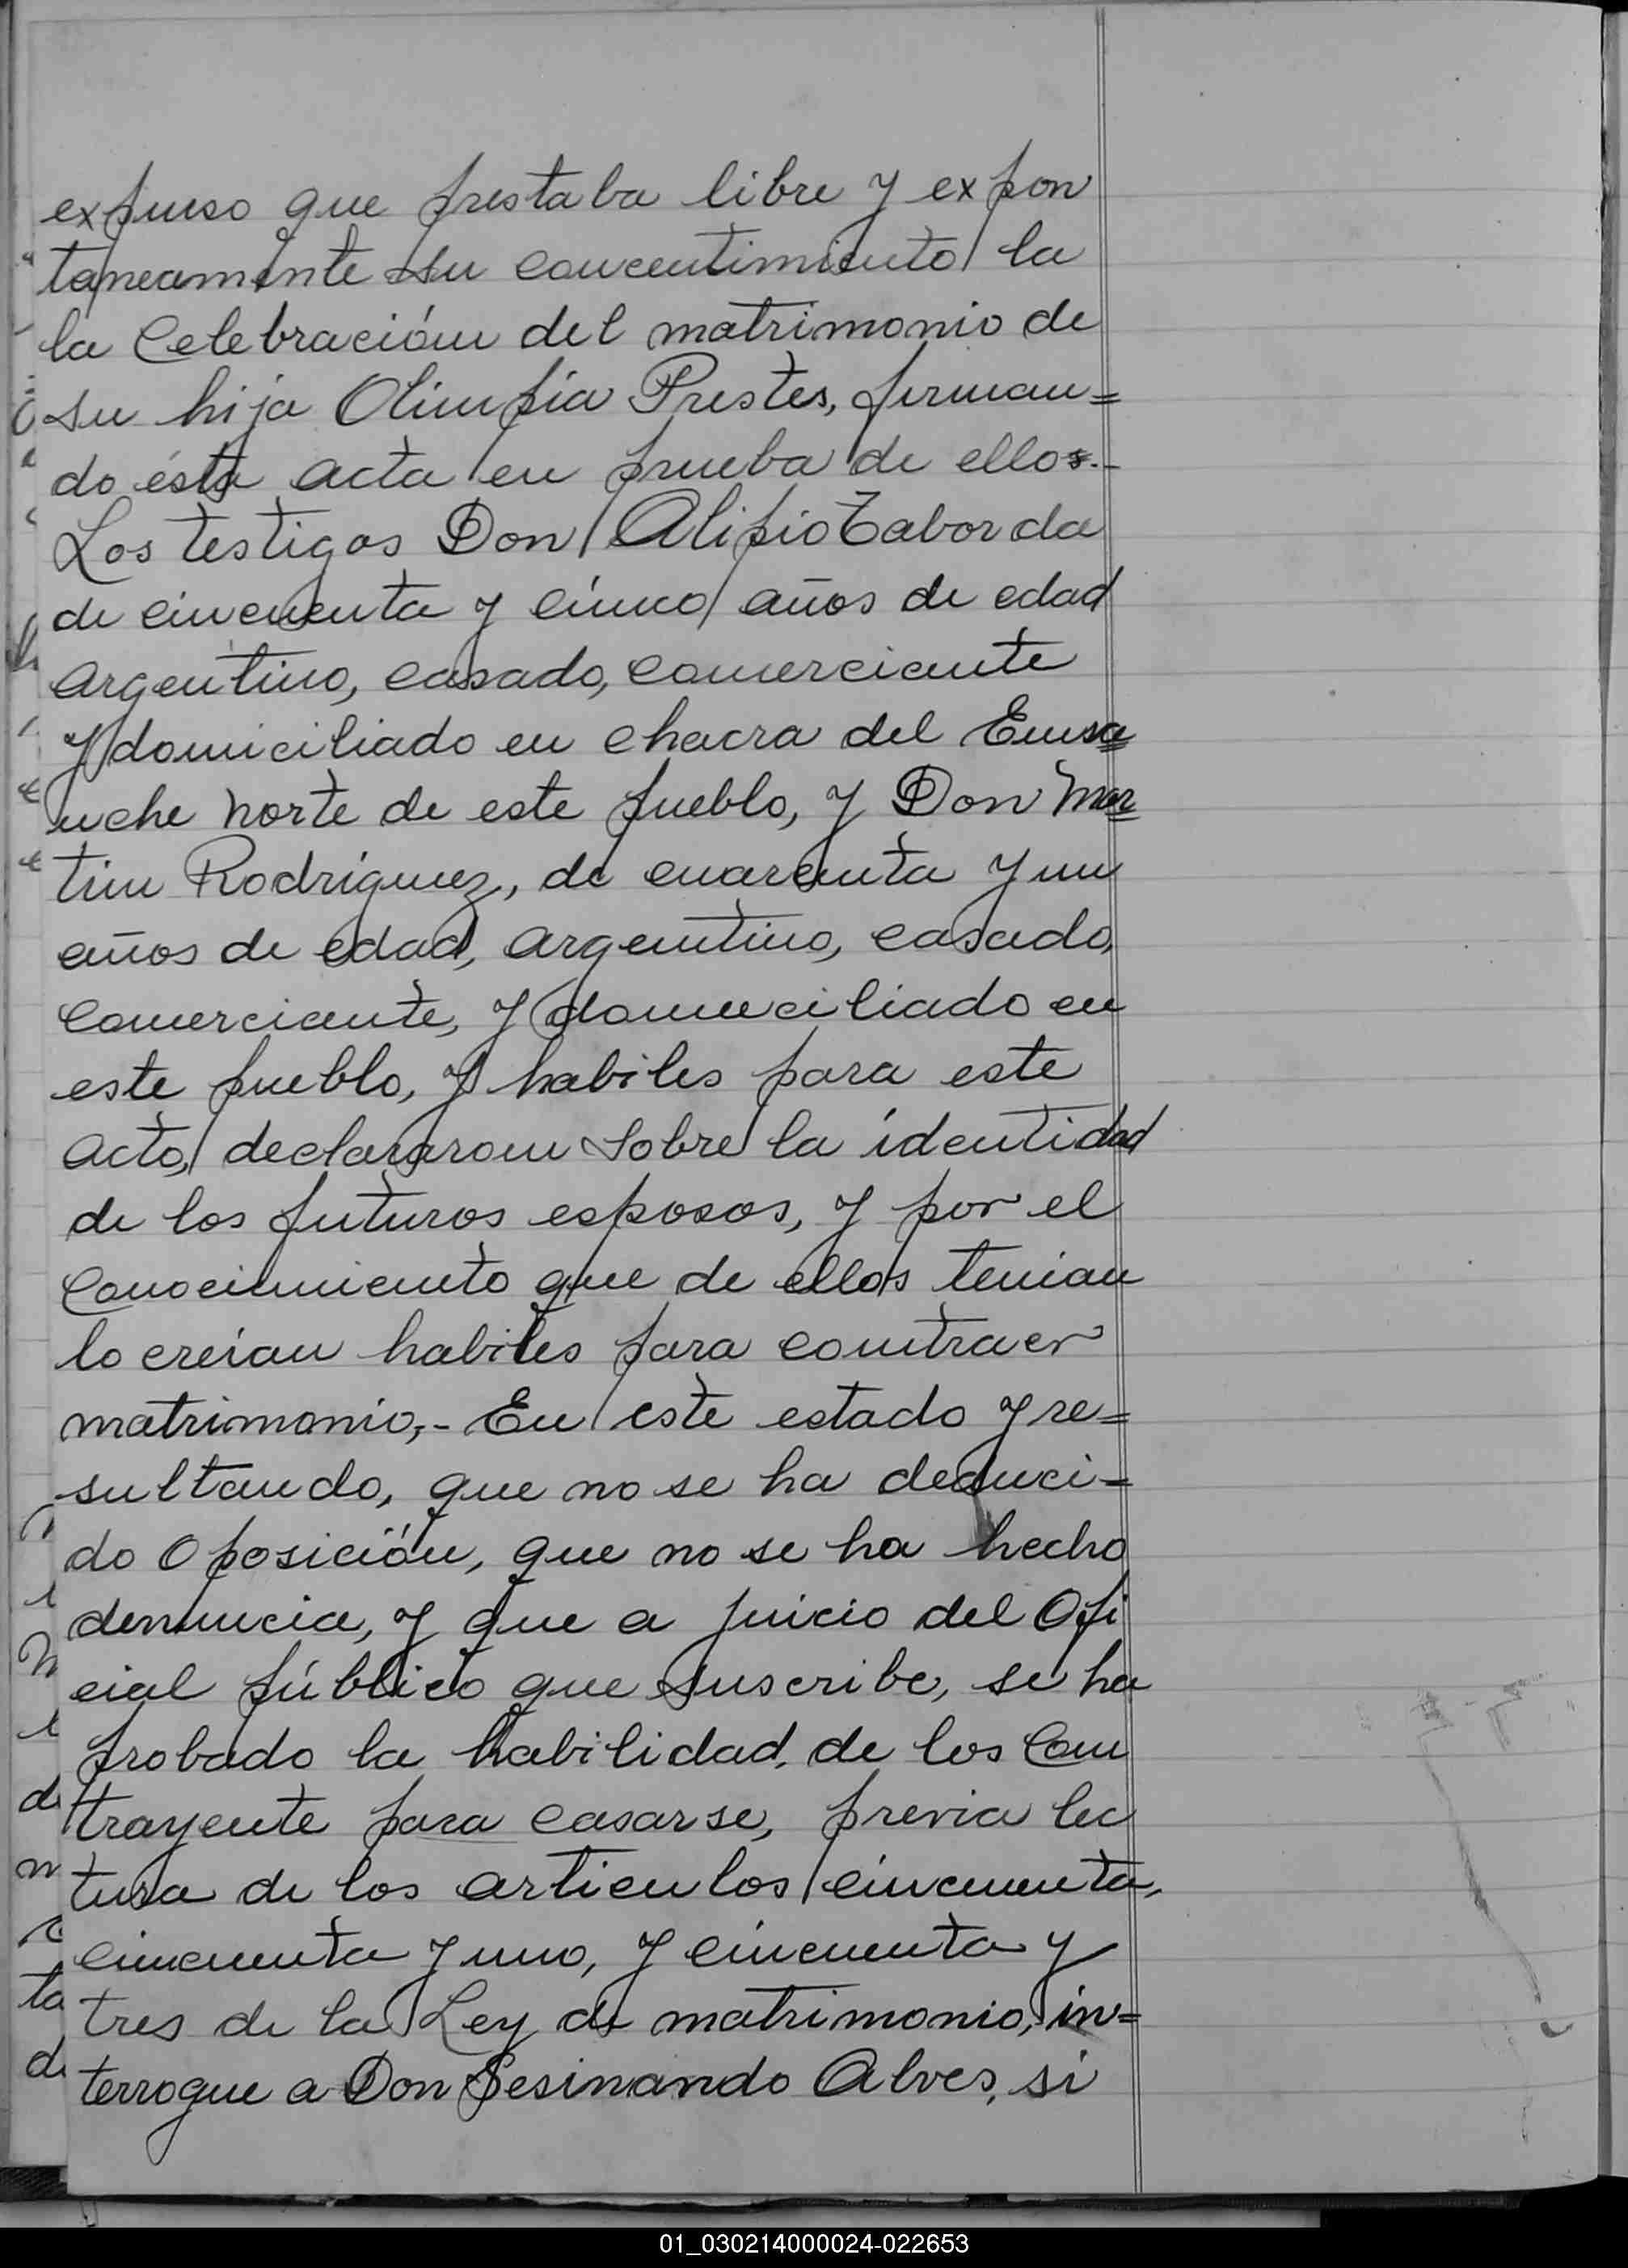 expuso que prestaba libre y expon
taneamente su concentimiento la
la Celebración del matrimonio de
su hija Olimpia Prestes, firman=
do ésta acta en prueba de ellos.-
Los testigos Don Alipio Taborda
de cincuenta y cinco años de edad
argentino, casado, comerciante
y domiciliado en chacra del Ensa=
nche norte de este pueblo, y Don Mar=
tin Rodríguez, de cuarenta y un
años de edad, argentino, casado,
comerciante, y domiciliado en
este pueblo, y habiles para este
acto, declararon sobre la identidad
de los futuros esposos, y por el
conocimiento que de ellos tenian
lo creían habiles para contraer
matrimonio,- En este estado y re=
sultando, que no se ha deduci=
do oposición, que no se ha hecho
denuncia, y que a juicio del Ofi
cial público que suscribe, se ha
probado la habilidad, de los Con
trayente para casarse, previa lec
tura de los articulos cincuenta,
cincuenta y uno, y cincuenta y
tres de la Ley de matrimonio, in=
terrogue a Don Sesinando Alves, si
01_030214000024-022653